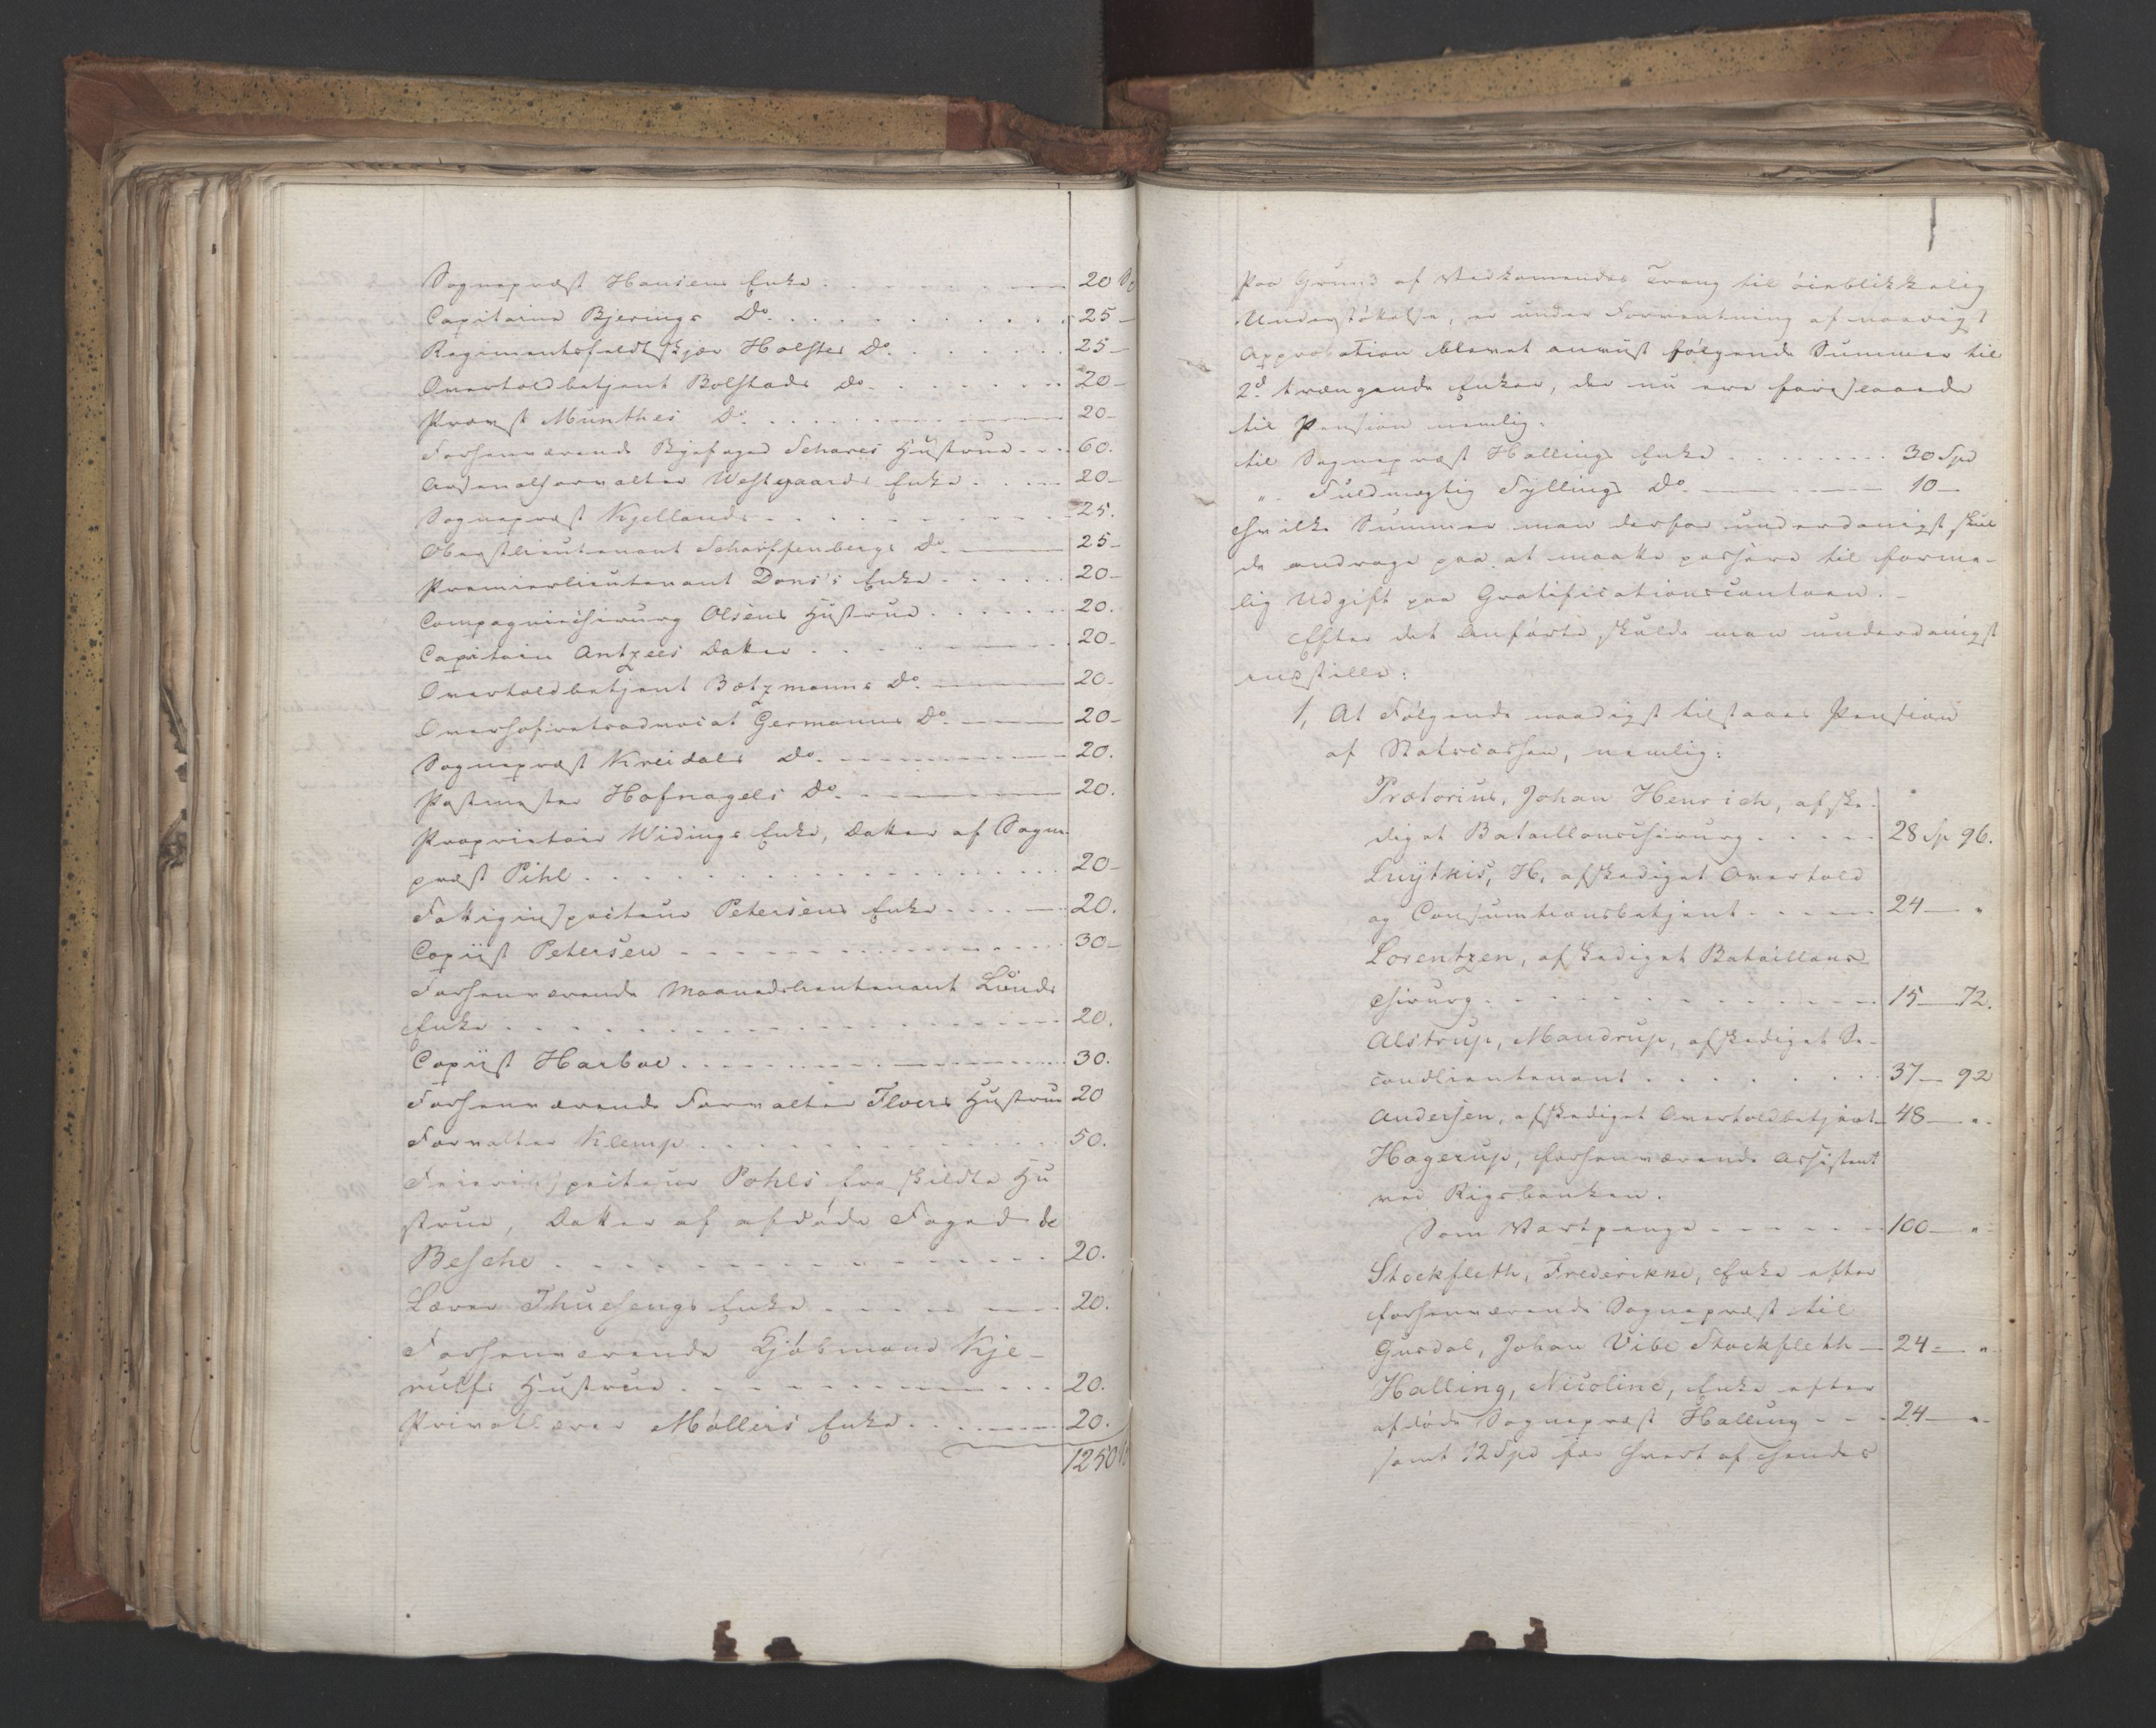 Sognepræst Hansens Enke . . . . . . 20 Sp
Capitaine Bjerings Do. . . . . . . . 25 —
Regimentsfeldtskjær Holstes Do. . . . . . 25 —
Overtoldbetjent Bolstads do. . . . . . 20 —
Provst Munthes Do. . . . . . 20 —
Forhenværende Byefoged Schares Hustrue . . . 60.
Arsenalforvalter Westgaards Enke . . . . 20 —
Sognepræst Kjellands . . . . . . 25.
Oberstlieutenant Scharffenbergs Do. —— 25 —
Premierlieutenant Dons's Enke . . . . . 20 —
Compagniechirurg Olsens Hustrue . . . . . 20.
Capitain Antzees Datter . . . . . . 20 —
Overtoldbetjent Botzmanns Do. —— 20 —
Overhofretsadvocat Germanns Do. —— 20 —
Sognepræst Kreidals Do. —— 20.
Postmester Hofnagels Do. —— 20.
Proprietair Widings Enke, Datter af Sogne-
præst Pihl . . . . . . . . 20 —
Fattiginspecteur Petersens Enke . . . . 20.
Copiist Petersen . . . . . . 30 —
Forhenværende Maanedslieutenant Lunds
Enke . . . . . . . . 20.
Copiist Harboe . . . . . . 30.
Forhenværende Forvalter Floers Hustrue 20
Forvalter Klemp . . . . . . 50.
Feierinspecteur Pohls fraskildte Hu
strue, Datter af afdøde Foged de
Besche . . . . . . . . 20.
Lærer Thuesengs Enke . . . . . 20.
Forhenværende Kjøbmand Kje-
rulfs Hustrue . . . . . . . 20.
Privatlærer Møllers Enke . . . . . 20.
1250 Sp
Paa Grund af Vedkommendes Trang til øieblikkelig
Understøttelse, er under Forventning af naadigst
Approbation blevet anviist følgende Summer til
2de trængende Enker, der nu ere foreslaaede
til Pension nemlig:
til Sognepræst Hallings Enke . . . . . . 30 Spd
„ Fuldmægtig Fyllings Do. —— 10 —
hvilke Summer man derfor underdanigst skul
de andrage paa at maatte passere til forme-
lig Udgift paa Gratificationscontoen. —
Efter det Anførte skulde man underdanigst
indstille:
1, At Følgende naadigst tilstaaes Pension
af Statscassen, nemlig:
Prætorius, Johan Henrich, afske-
diget Bataillonschirurg . . . . 28 Sp 96.
Luytkis, H. afskediget Overtold
og Consumtionsbetjent . . . . 24 — "
Lorentzen, afskediget Bataillons
chirurg . . . . . . . 15 — 72.
Alstrup, Mandrup, afskediget Se-
condlieutenant . . . . . . 37 — 92
Andersen, afskediget Overtoldbetjent — 48 — "
Hagerup, forhenværende Assistent
ved Rigsbanken.
Som Vartpenge . . . . . 100 — "
Stockfleth, Frederikke, Enke efter
forhenværende Sognepræst til
Gusdal, Johan Vibe Stockfleth — 24 — "
Halling, Nicoline, Enke efter
afdøde Sognepræst Halling - - - 24 — "
samt 12 Spd for hvert af hendes